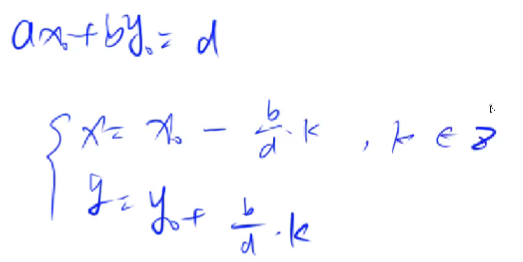 ax₀+by₀=d
x = x₀ - b/d · k , k ∈ z
y = y₀ + b/d · k